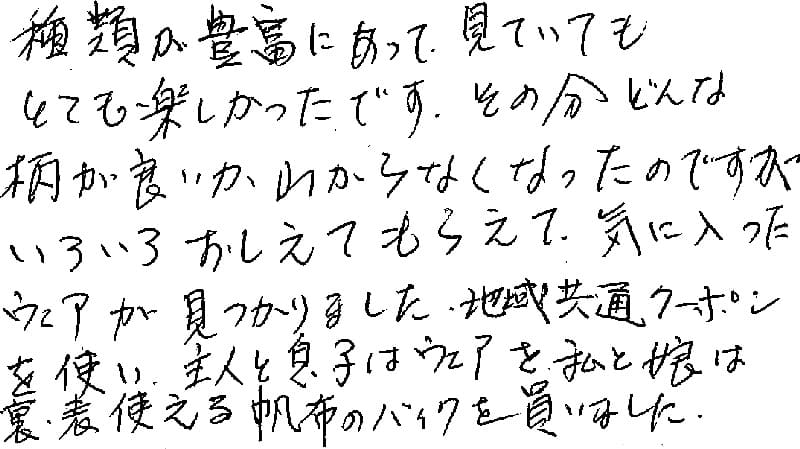 種類が豊富にあって、見ていても
とても楽しかったです。その分どんな
柄が良いか、わからなくなったのですが
いろいろおしえてもらえて、気に入った
ウェアが見つかりました。地域共通クーポン
を使い、主人と息子はウェアを、私と娘は
裏・表使える帆布のバックを買いました。